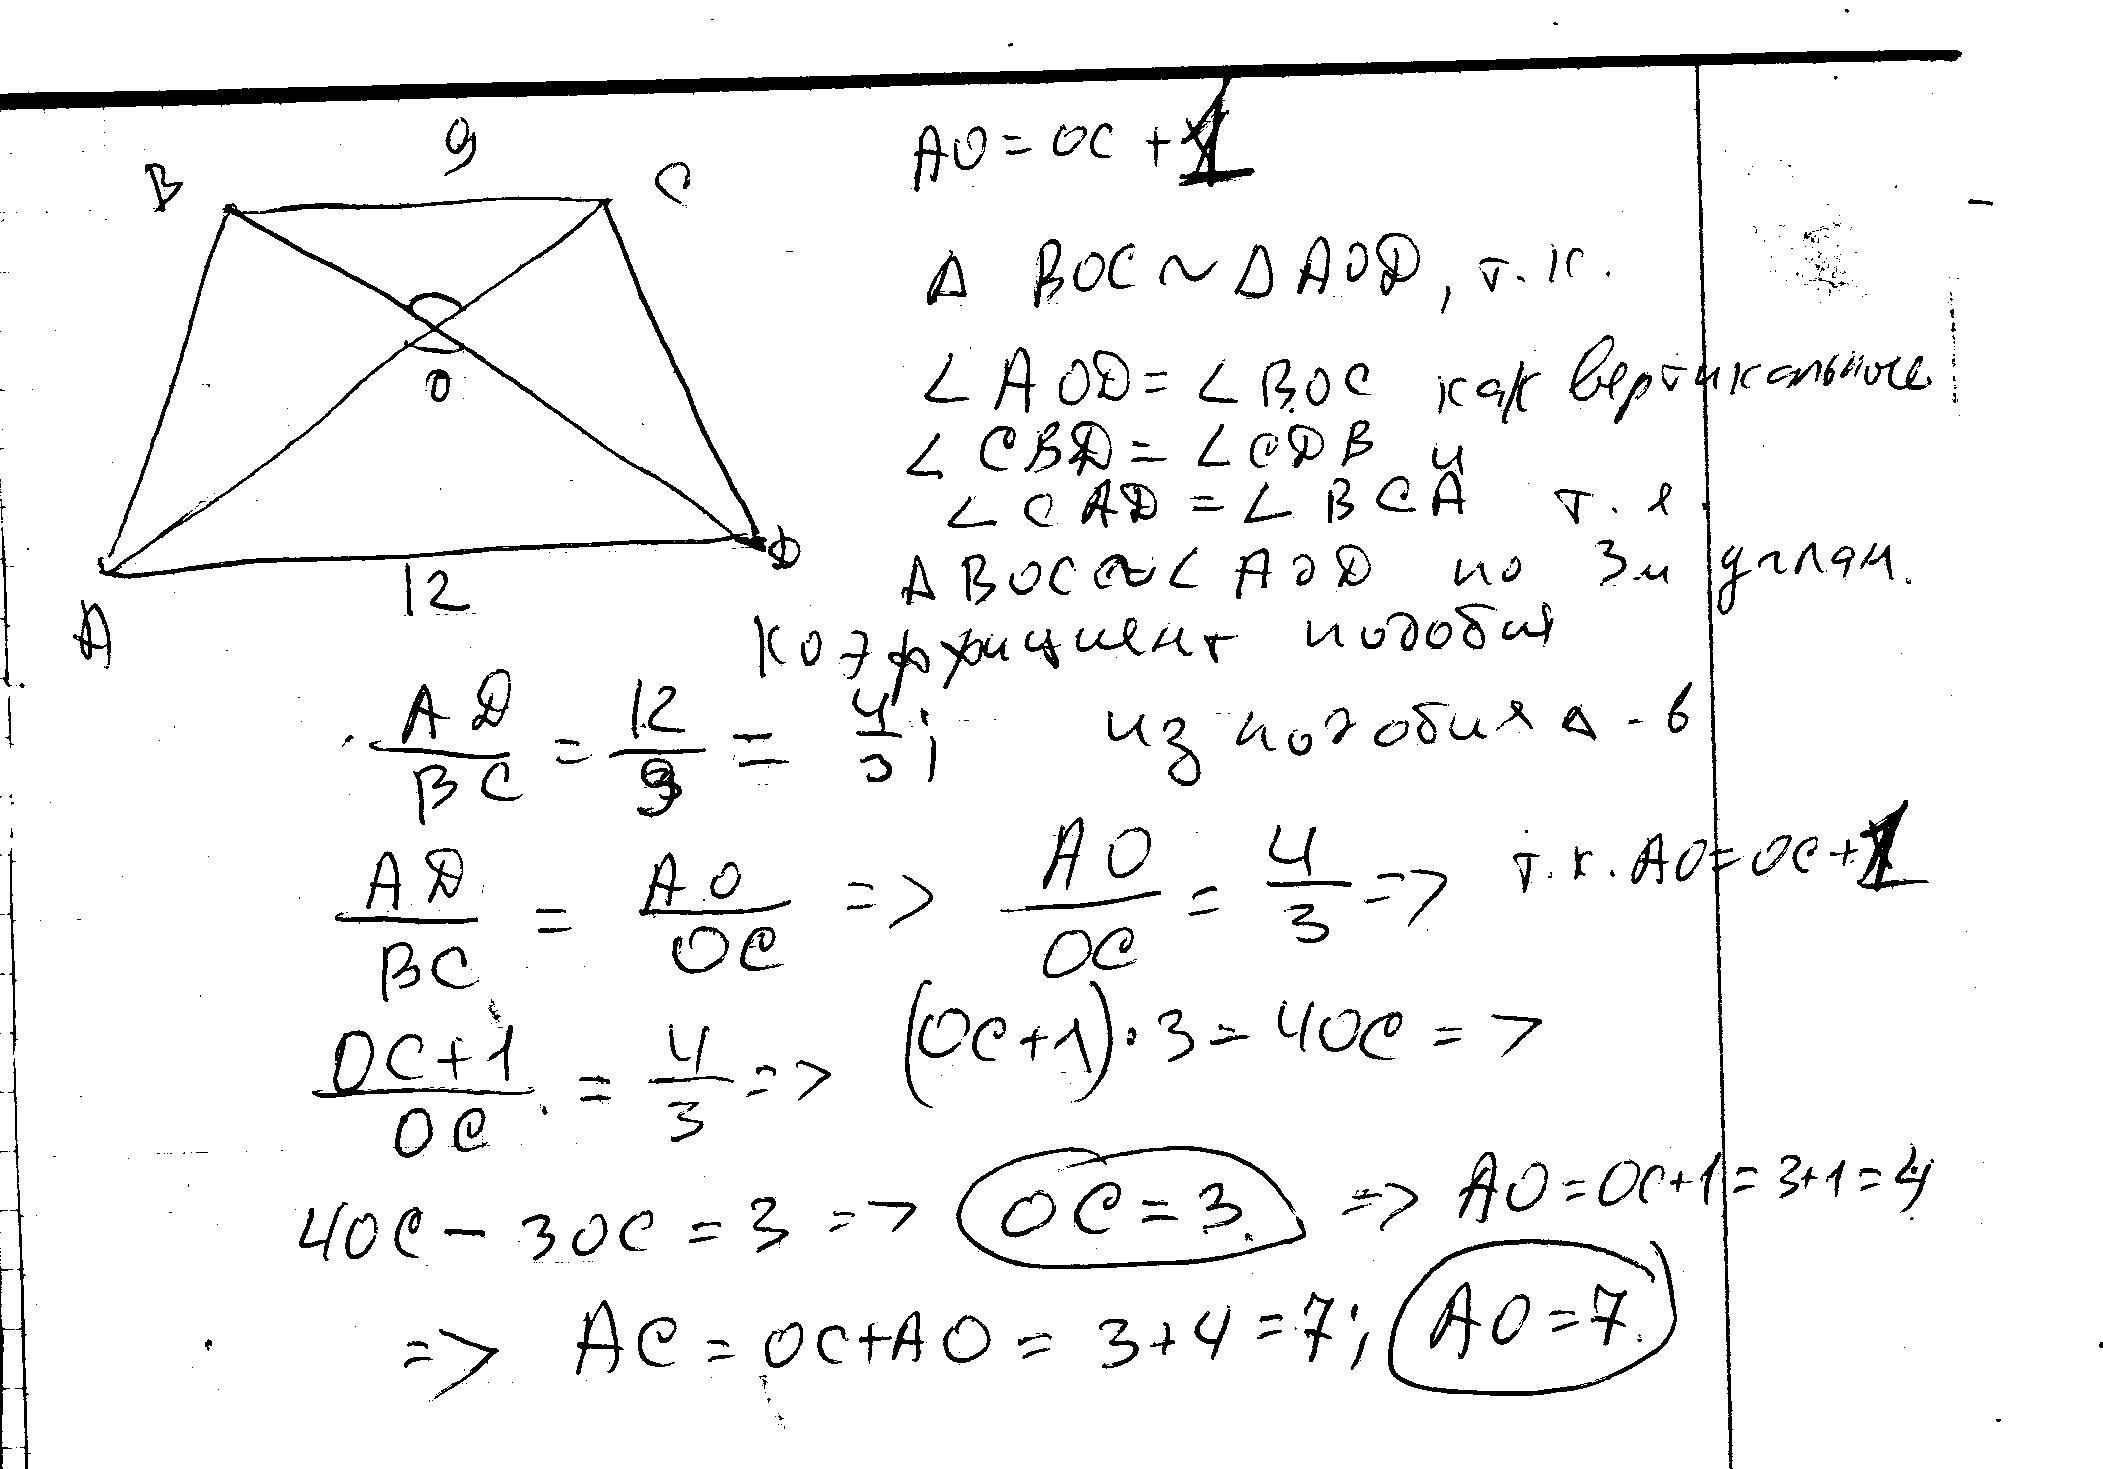 9
B C
AO = OC + 1
Δ BOC ~ Δ AOD, т.к.
∠ AOD = ∠ BOC как вертикальные
O
∠ CBD = ∠ CDB и
∠ CAD = ∠ BCA т.е.
Δ BOC ~ ∠ AOD по 3м углам.
12
A D
Коэффициент подобия
AD/BC = 12/9 = 4/3; из подобия Δ-в
AD/BC = AO/OC => AO/OC = 4/3 => т.к. AO = OC + 1
OC+1/OC = 4/3 => (OC+1)·3 = 4OC =>
4OC - 3OC = 3 => OC = 3. => AO = OC+1 = 3+1 = 4
=> AC = OC + AO = 3+4 = 7; AO = 7.